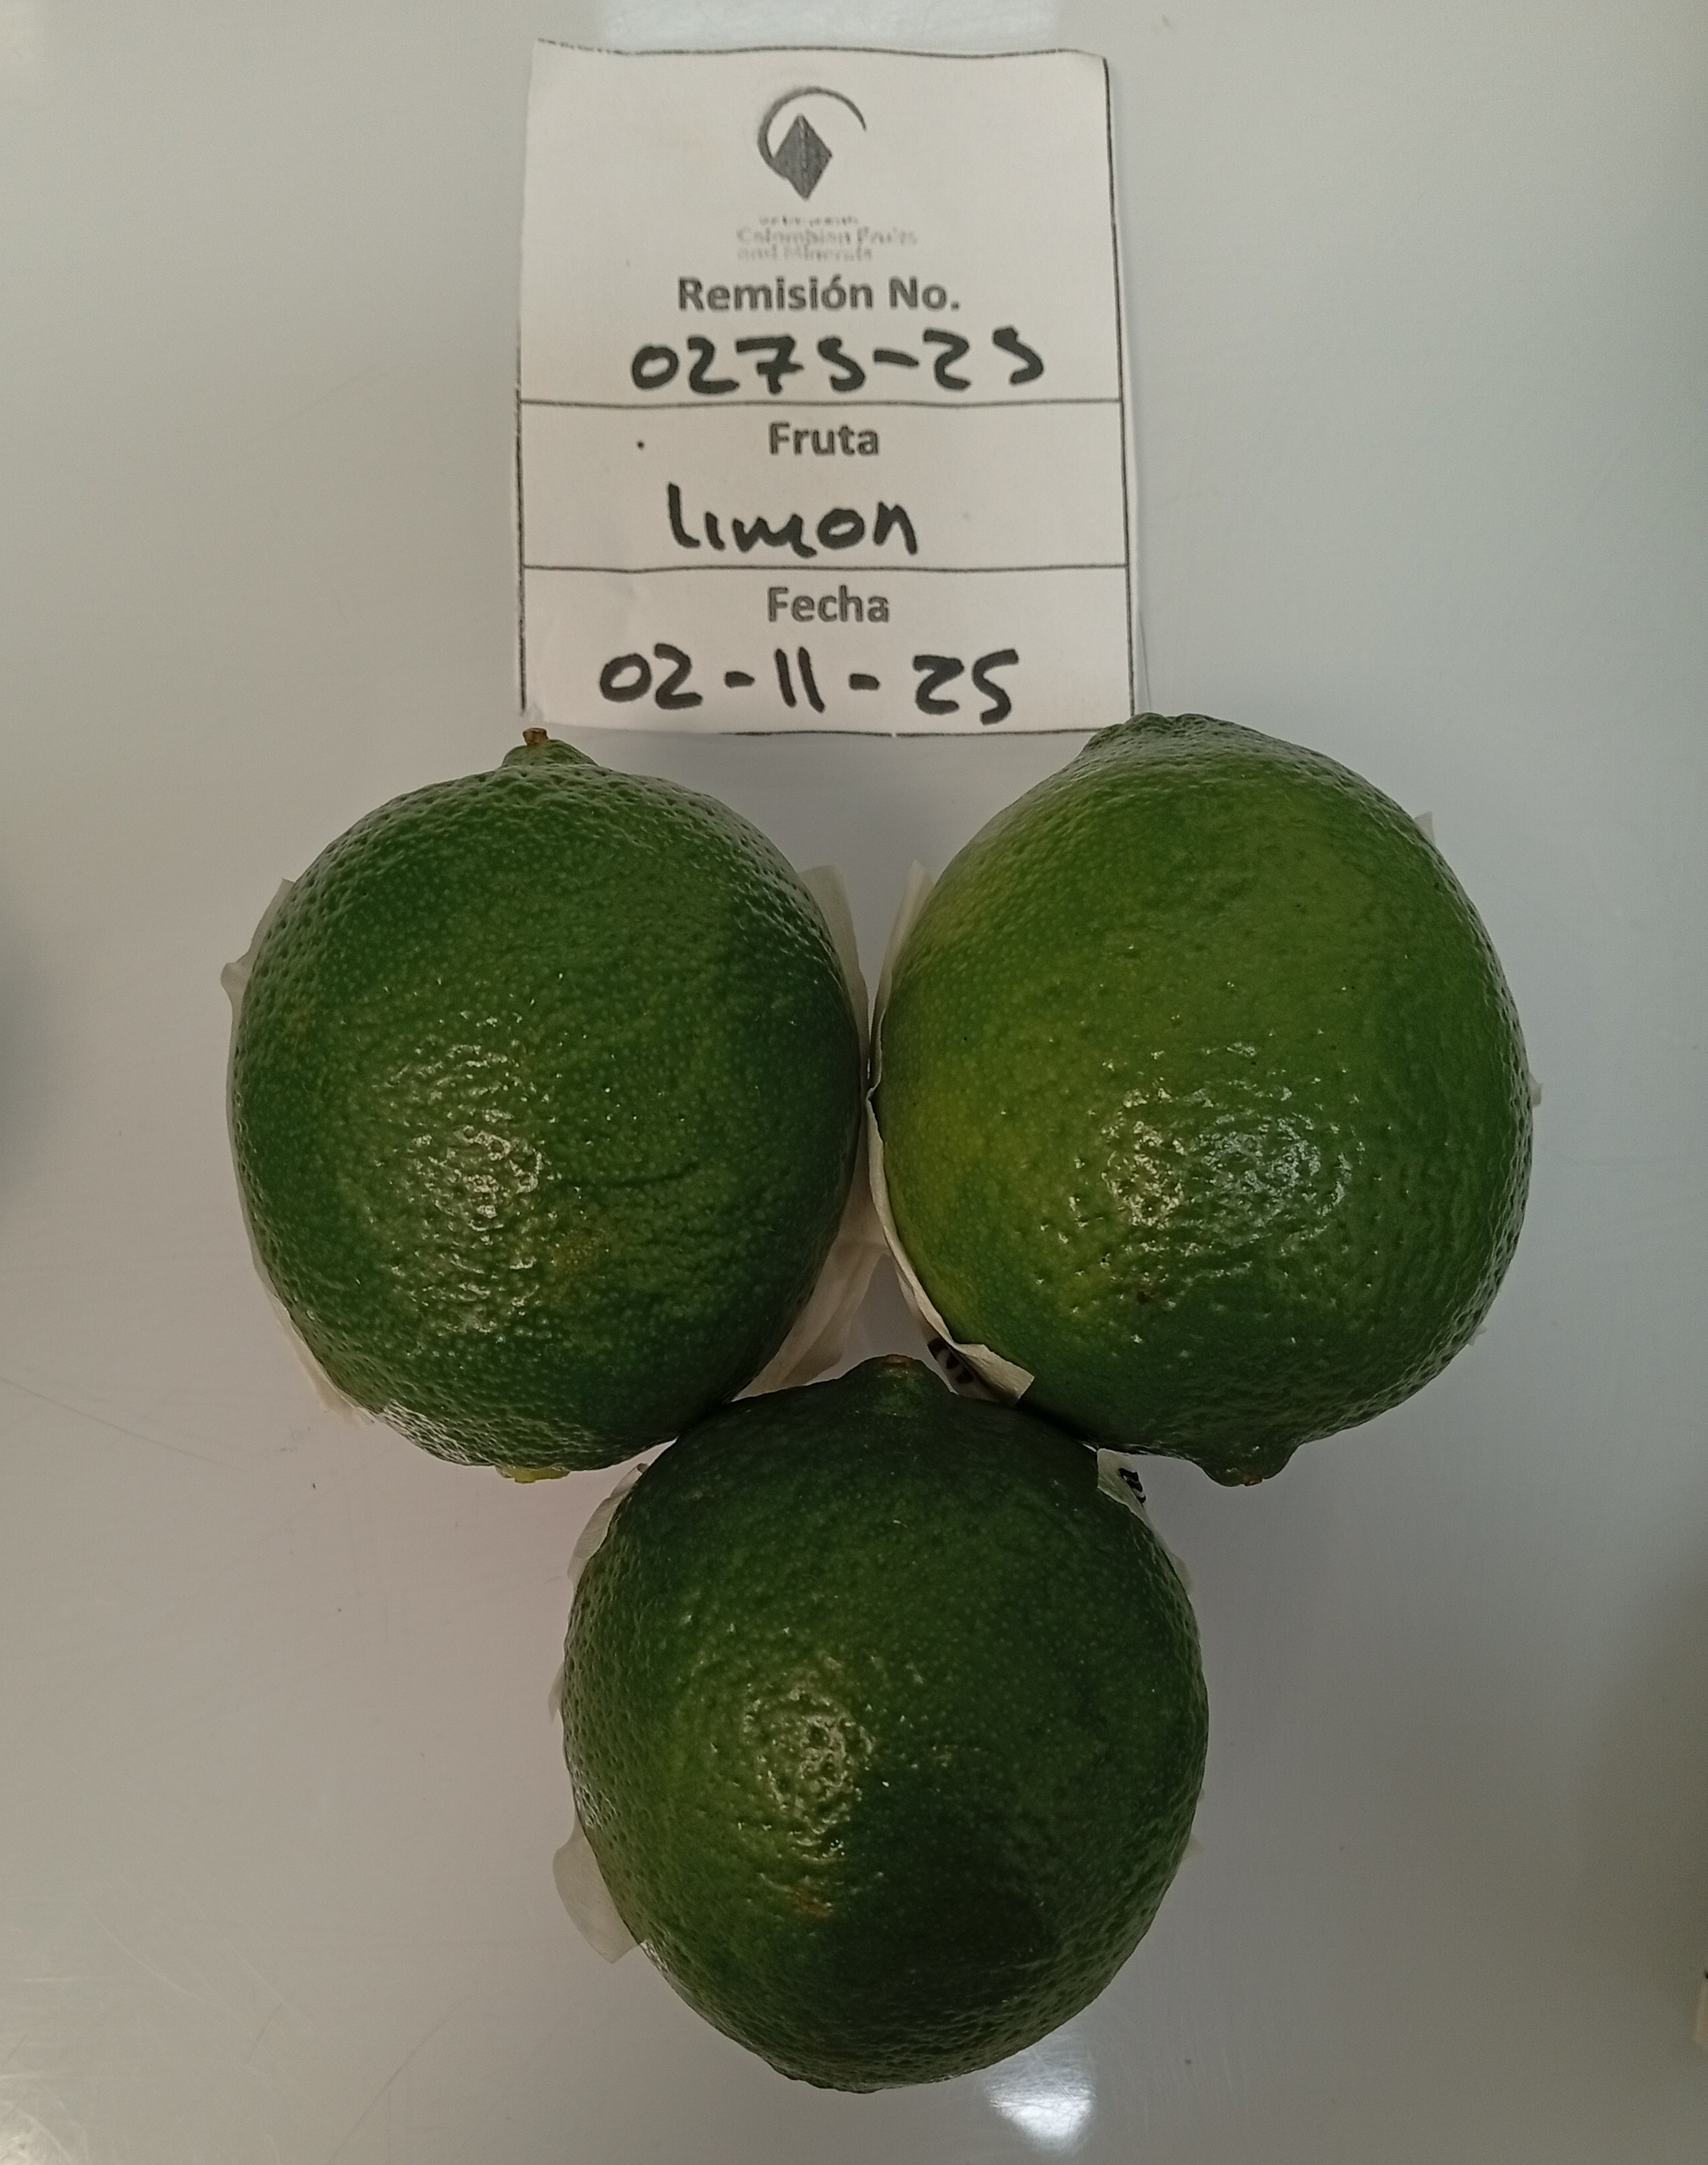 Colombian Fruits
and Minerals
Remisión No.
0275-25
Fruta
limon
Fecha
02-11-25